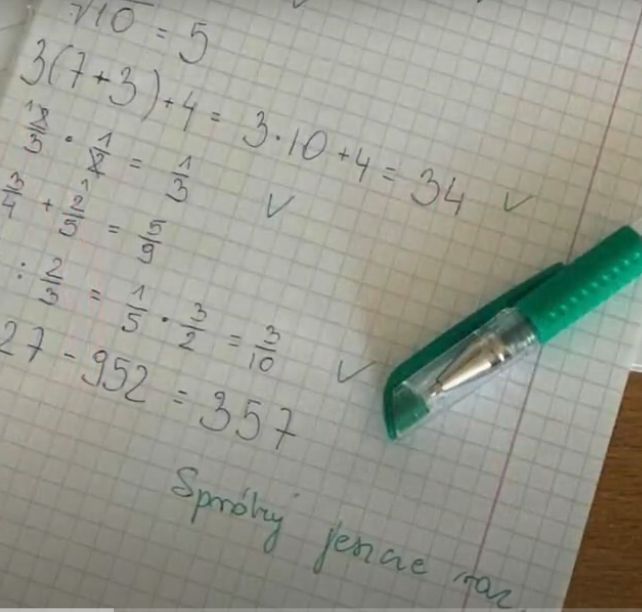 √10 = 5
3(7+3)+4 = 3·10+4 = 34 ✓
2/3 · 1/2 = 1/3 ✓
3/4 + 2/5 = 5/9
: 2/3 = 1/5 · 3/2 = 3/10 ✓
27 - 952 = 357
Spróbuj jeszcze raz